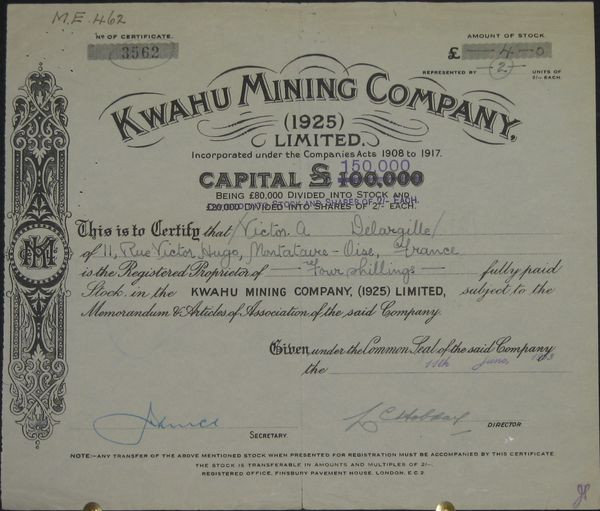 M.E. 462
No OF CERTIFICATE.
3562
AMOUNT OF STOCK
£ — 4 — 0
REPRESENTED BY 2 UNITS OF
2/- EACH.
KWAHU MINING COMPANY,
(1925)
LIMITED.
Incorporated under the Companies Acts 1908 to 1917.
150,000
CAPITAL £ 100,000
BEING £80,000 DIVIDED INTO STOCK AND
£20,000 DIVIDED INTO SHARES OF 2/- EACH.
This is to Certify that Victor A Delargille
of 11, Rue Victor Hugo, Montataire - Oise, France
is the Registered Proprietor of — Four shillings — fully paid
Stock in the KWAHU MINING COMPANY, (1925) LIMITED, subject to the
Memorandum & Articles of Association of the said Company.
Given under the Common Seal of the said Company
the 11th June, 193
SECRETARY.
DIRECTOR
NOTE:- ANY TRANSFER OF THE ABOVE MENTIONED STOCK WHEN PRESENTED FOR REGISTRATION MUST BE ACCOMPANIED BY THIS CERTIFICATE.
THE STOCK IS TRANSFERABLE IN AMOUNTS AND MULTIPLES OF 2/-.
REGISTERED OFFICE, FINSBURY PAVEMENT HOUSE, LONDON. E.C.2.